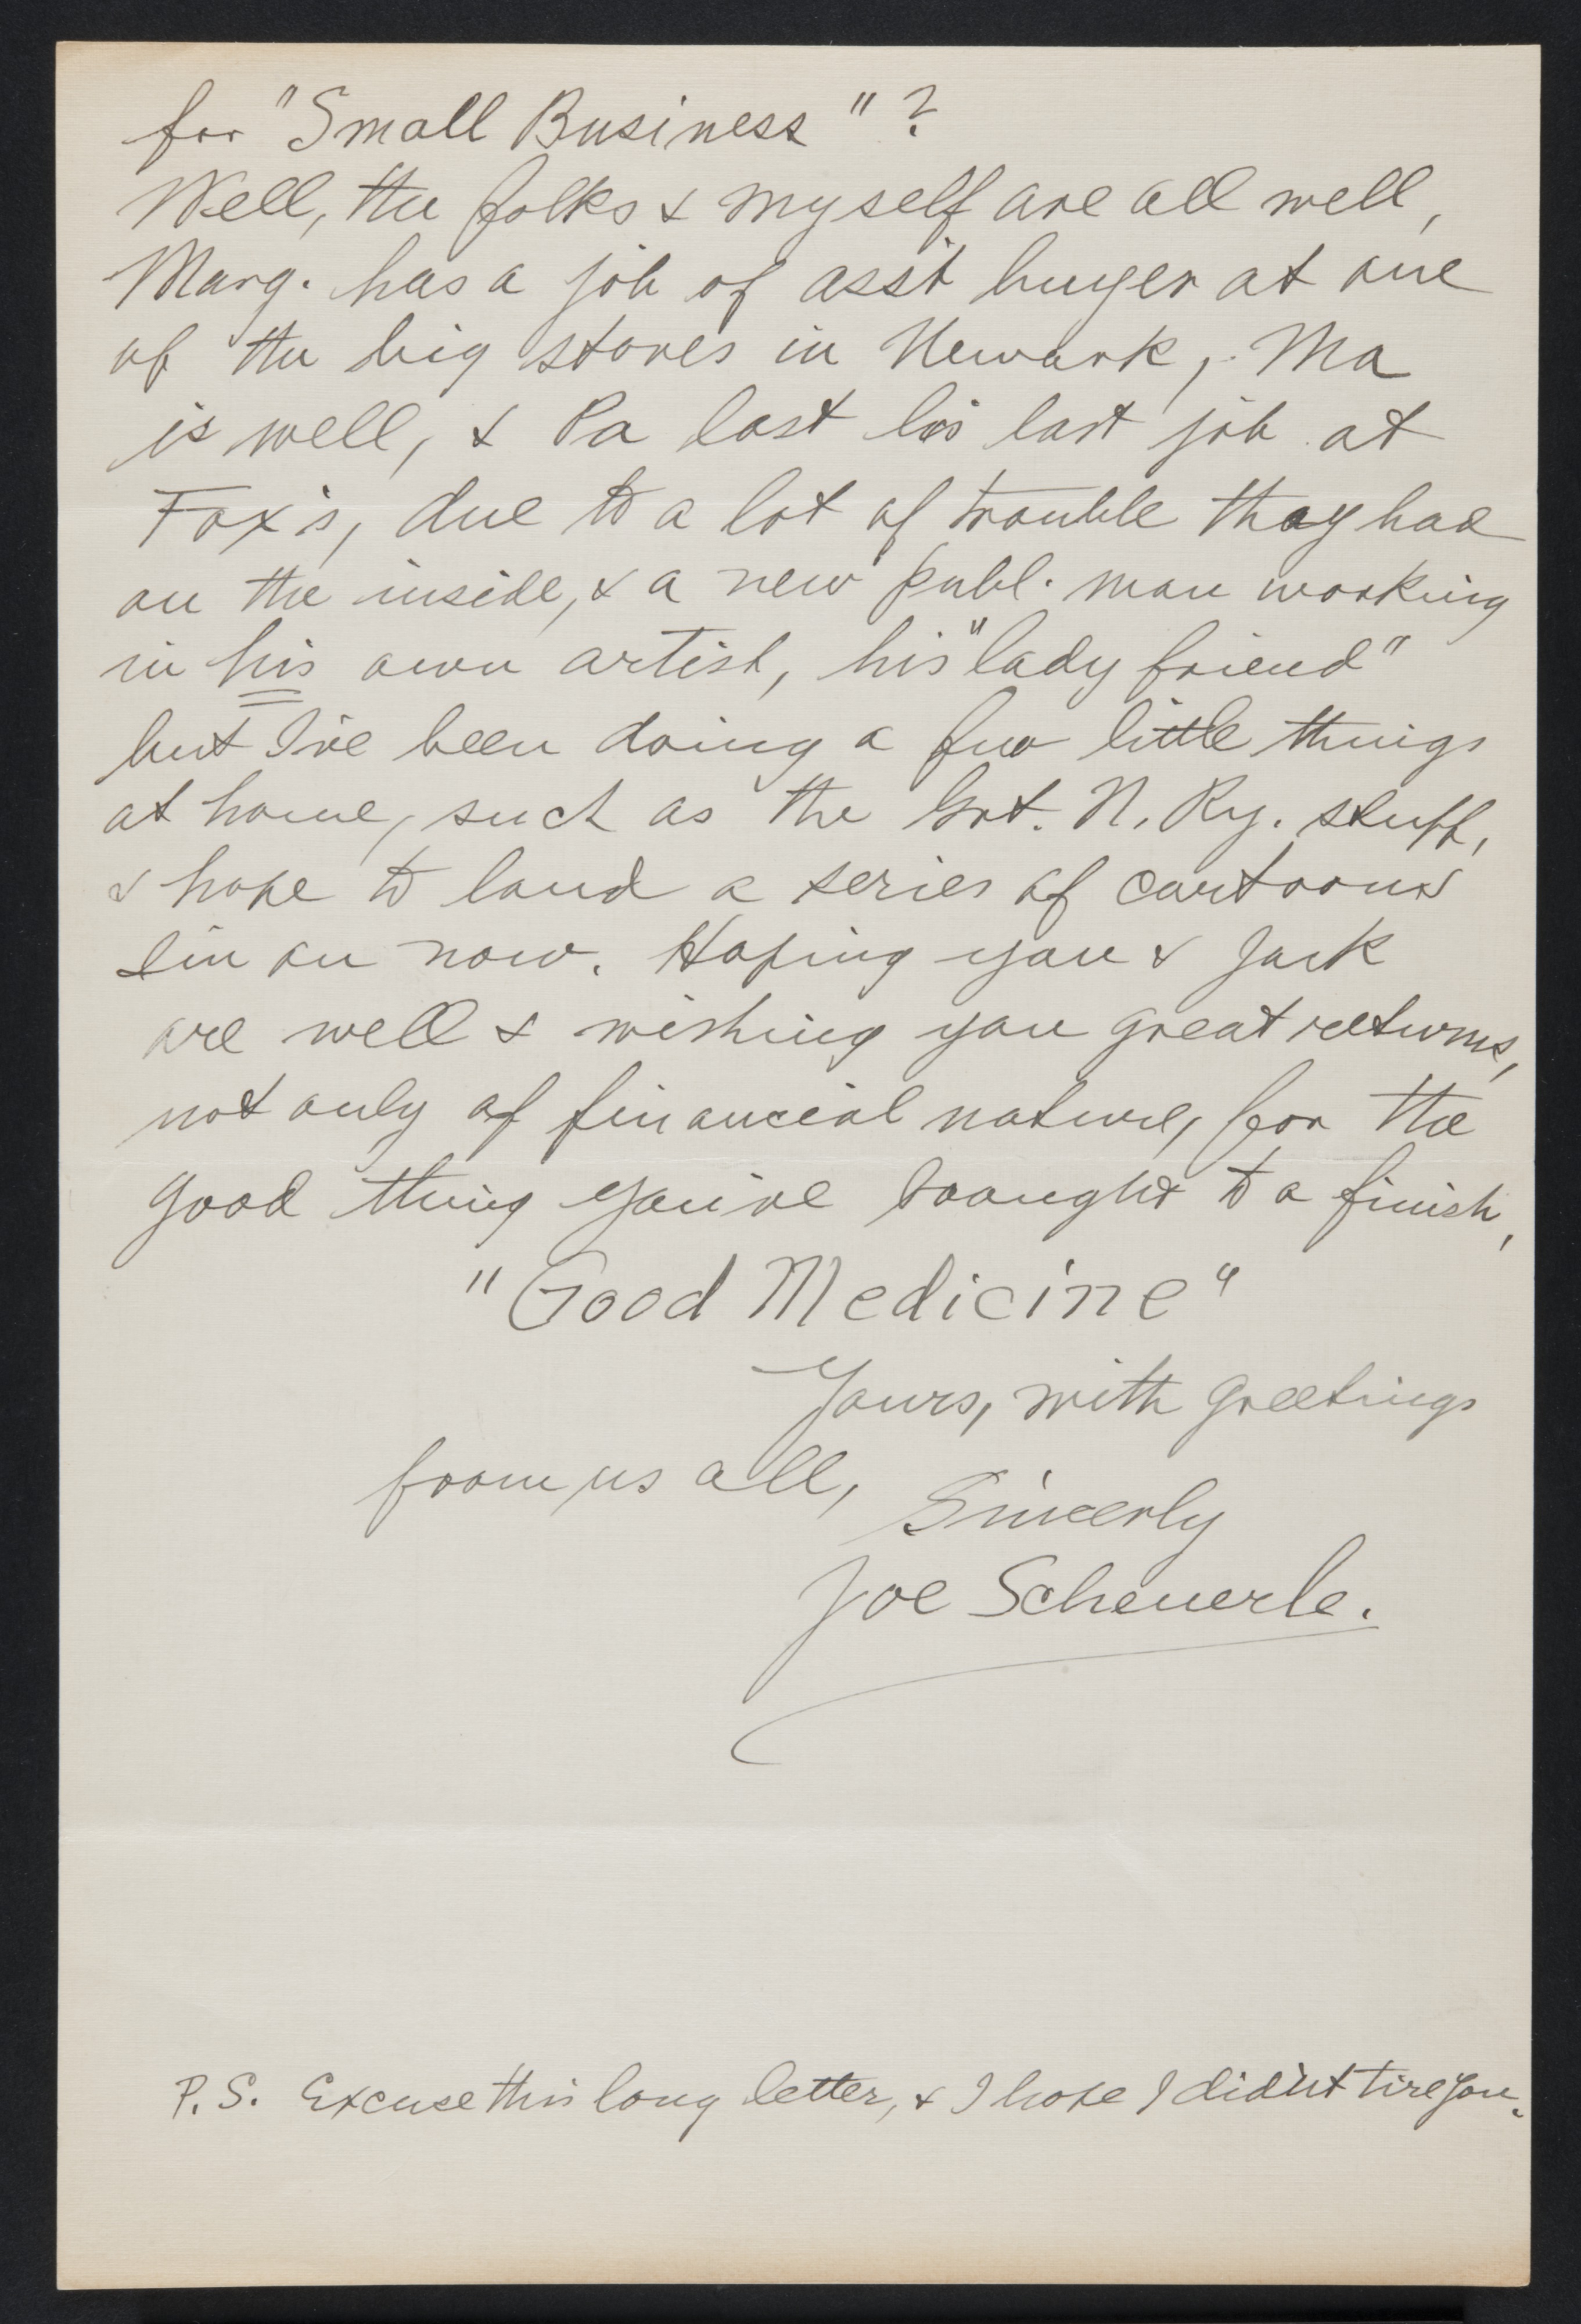 for "Small Business"?
Well, the folks & myself are all well,
Marg. has a job of ass't buyer at one
of the big stores in Newark, Ma
is well, & Pa lost his last job at
Fox's, due to a lot of trouble they had
on the inside, & a new publ. man working
in his own artist, his "lady friend"
but I've been doing a few little things
at home, such as the Grt. N. Ry. stuff,
& hope to land a series of cartoons
I'm on now. Hoping you & Jack
are well & wishing you great returns,
not only of financial nature, for the
good thing you've brought to a finish,
"Good Medicine"
Yours, with greetings
from us all,
Sincerly
Joe Scheuerle.
P.S. Excuse this long letter, & I hope I did'nt tire you.